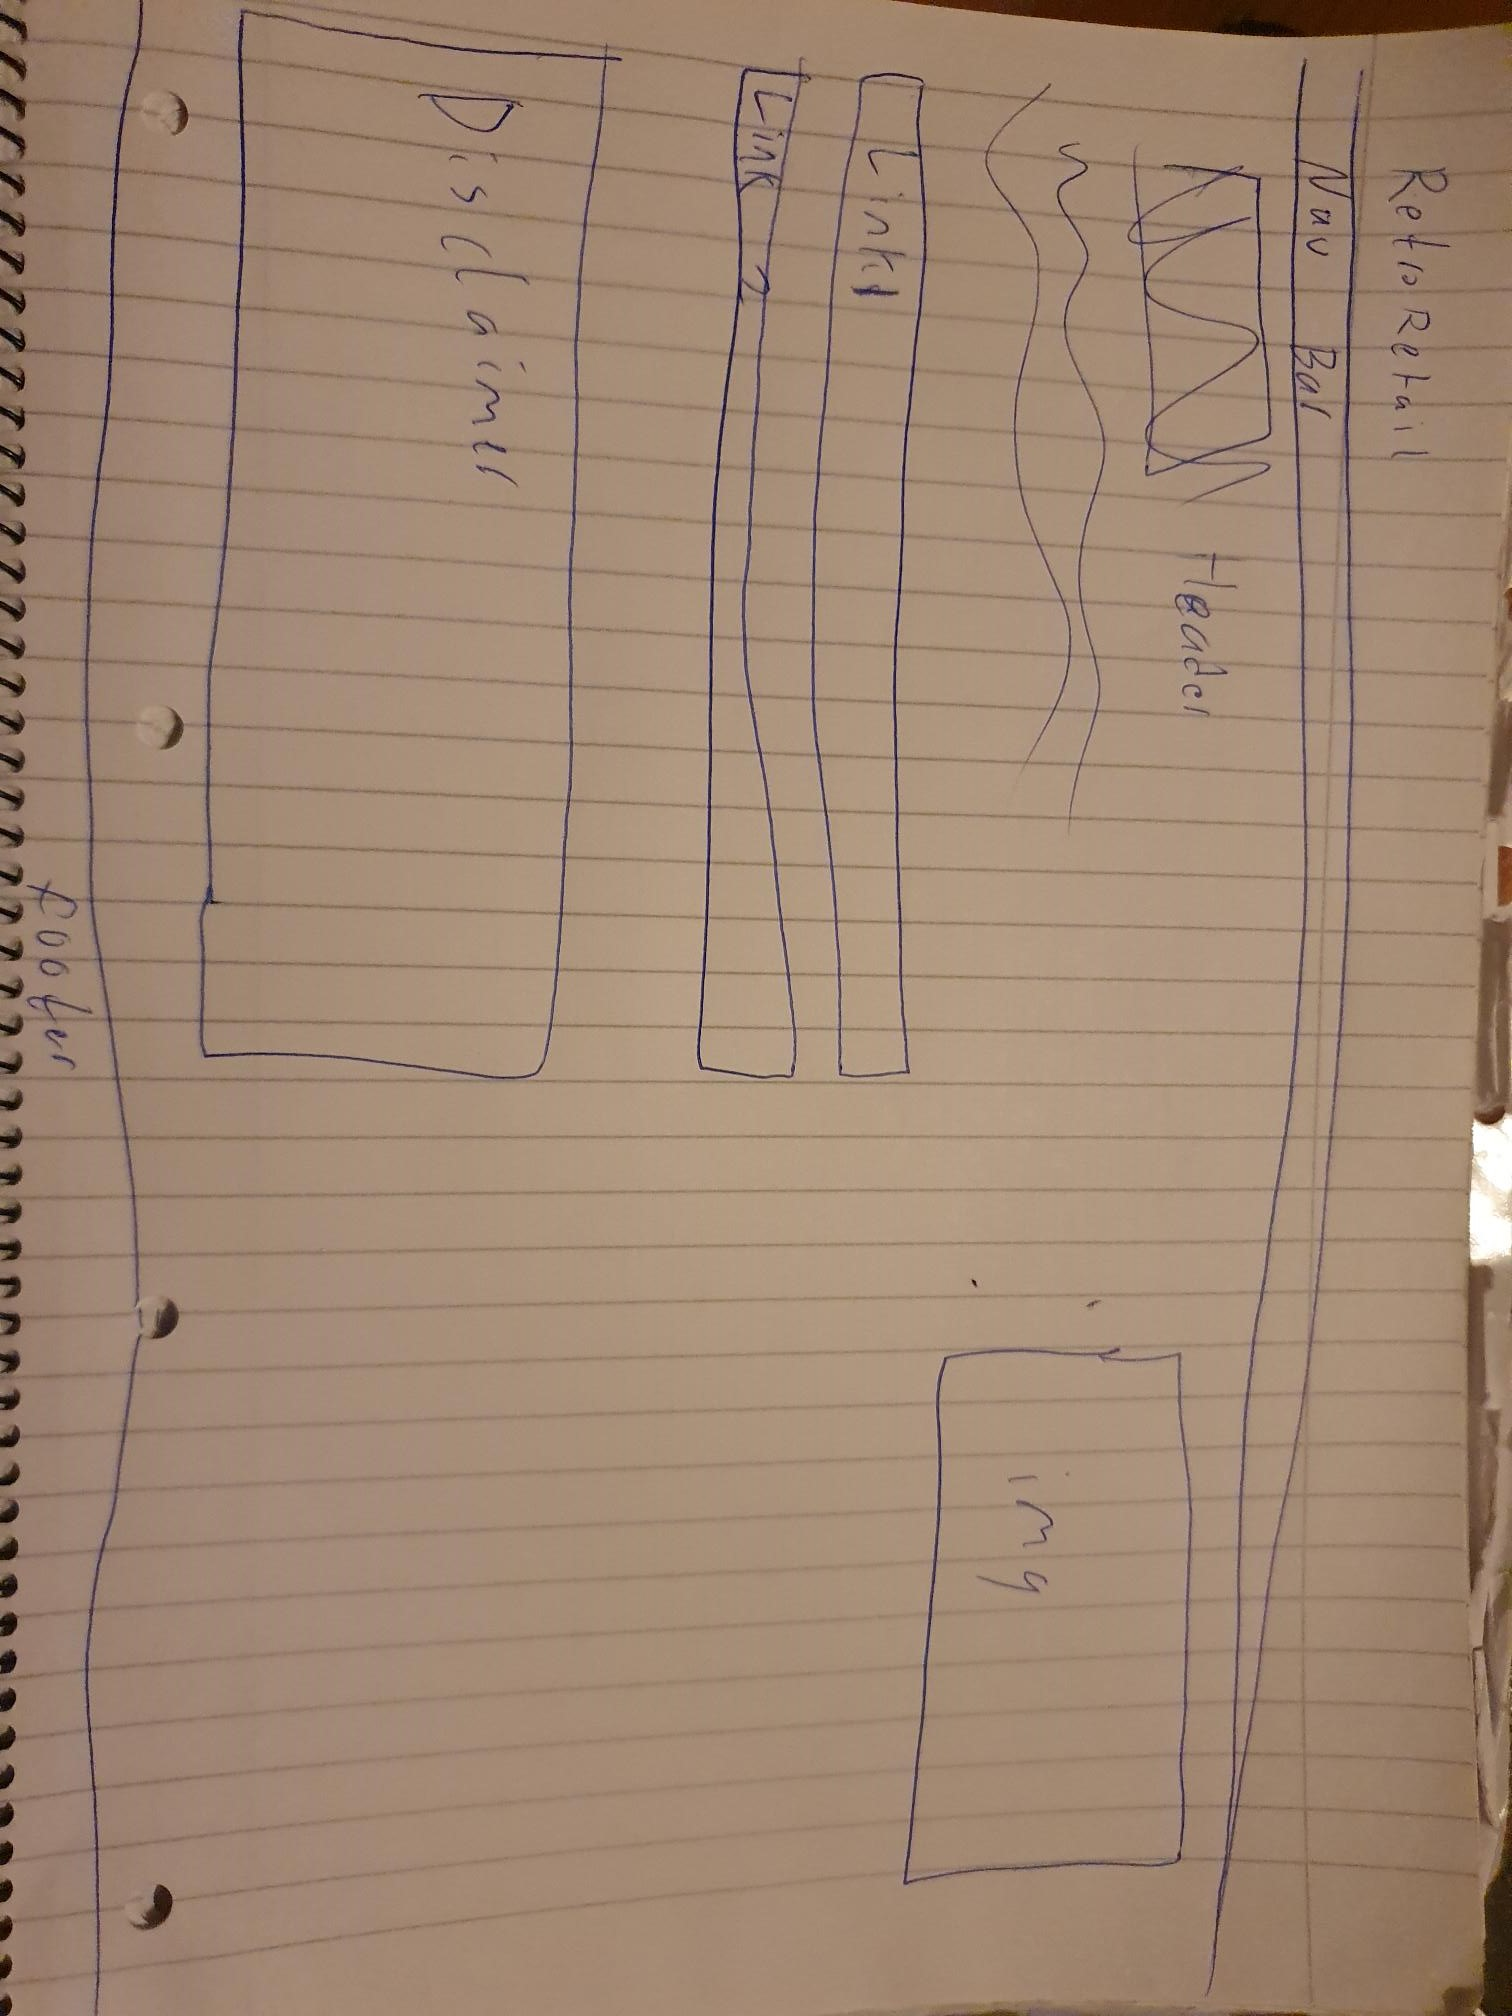 RetroRetail
Nav Bar
Header
img
Link1
Link 2
Disclaimer
footer